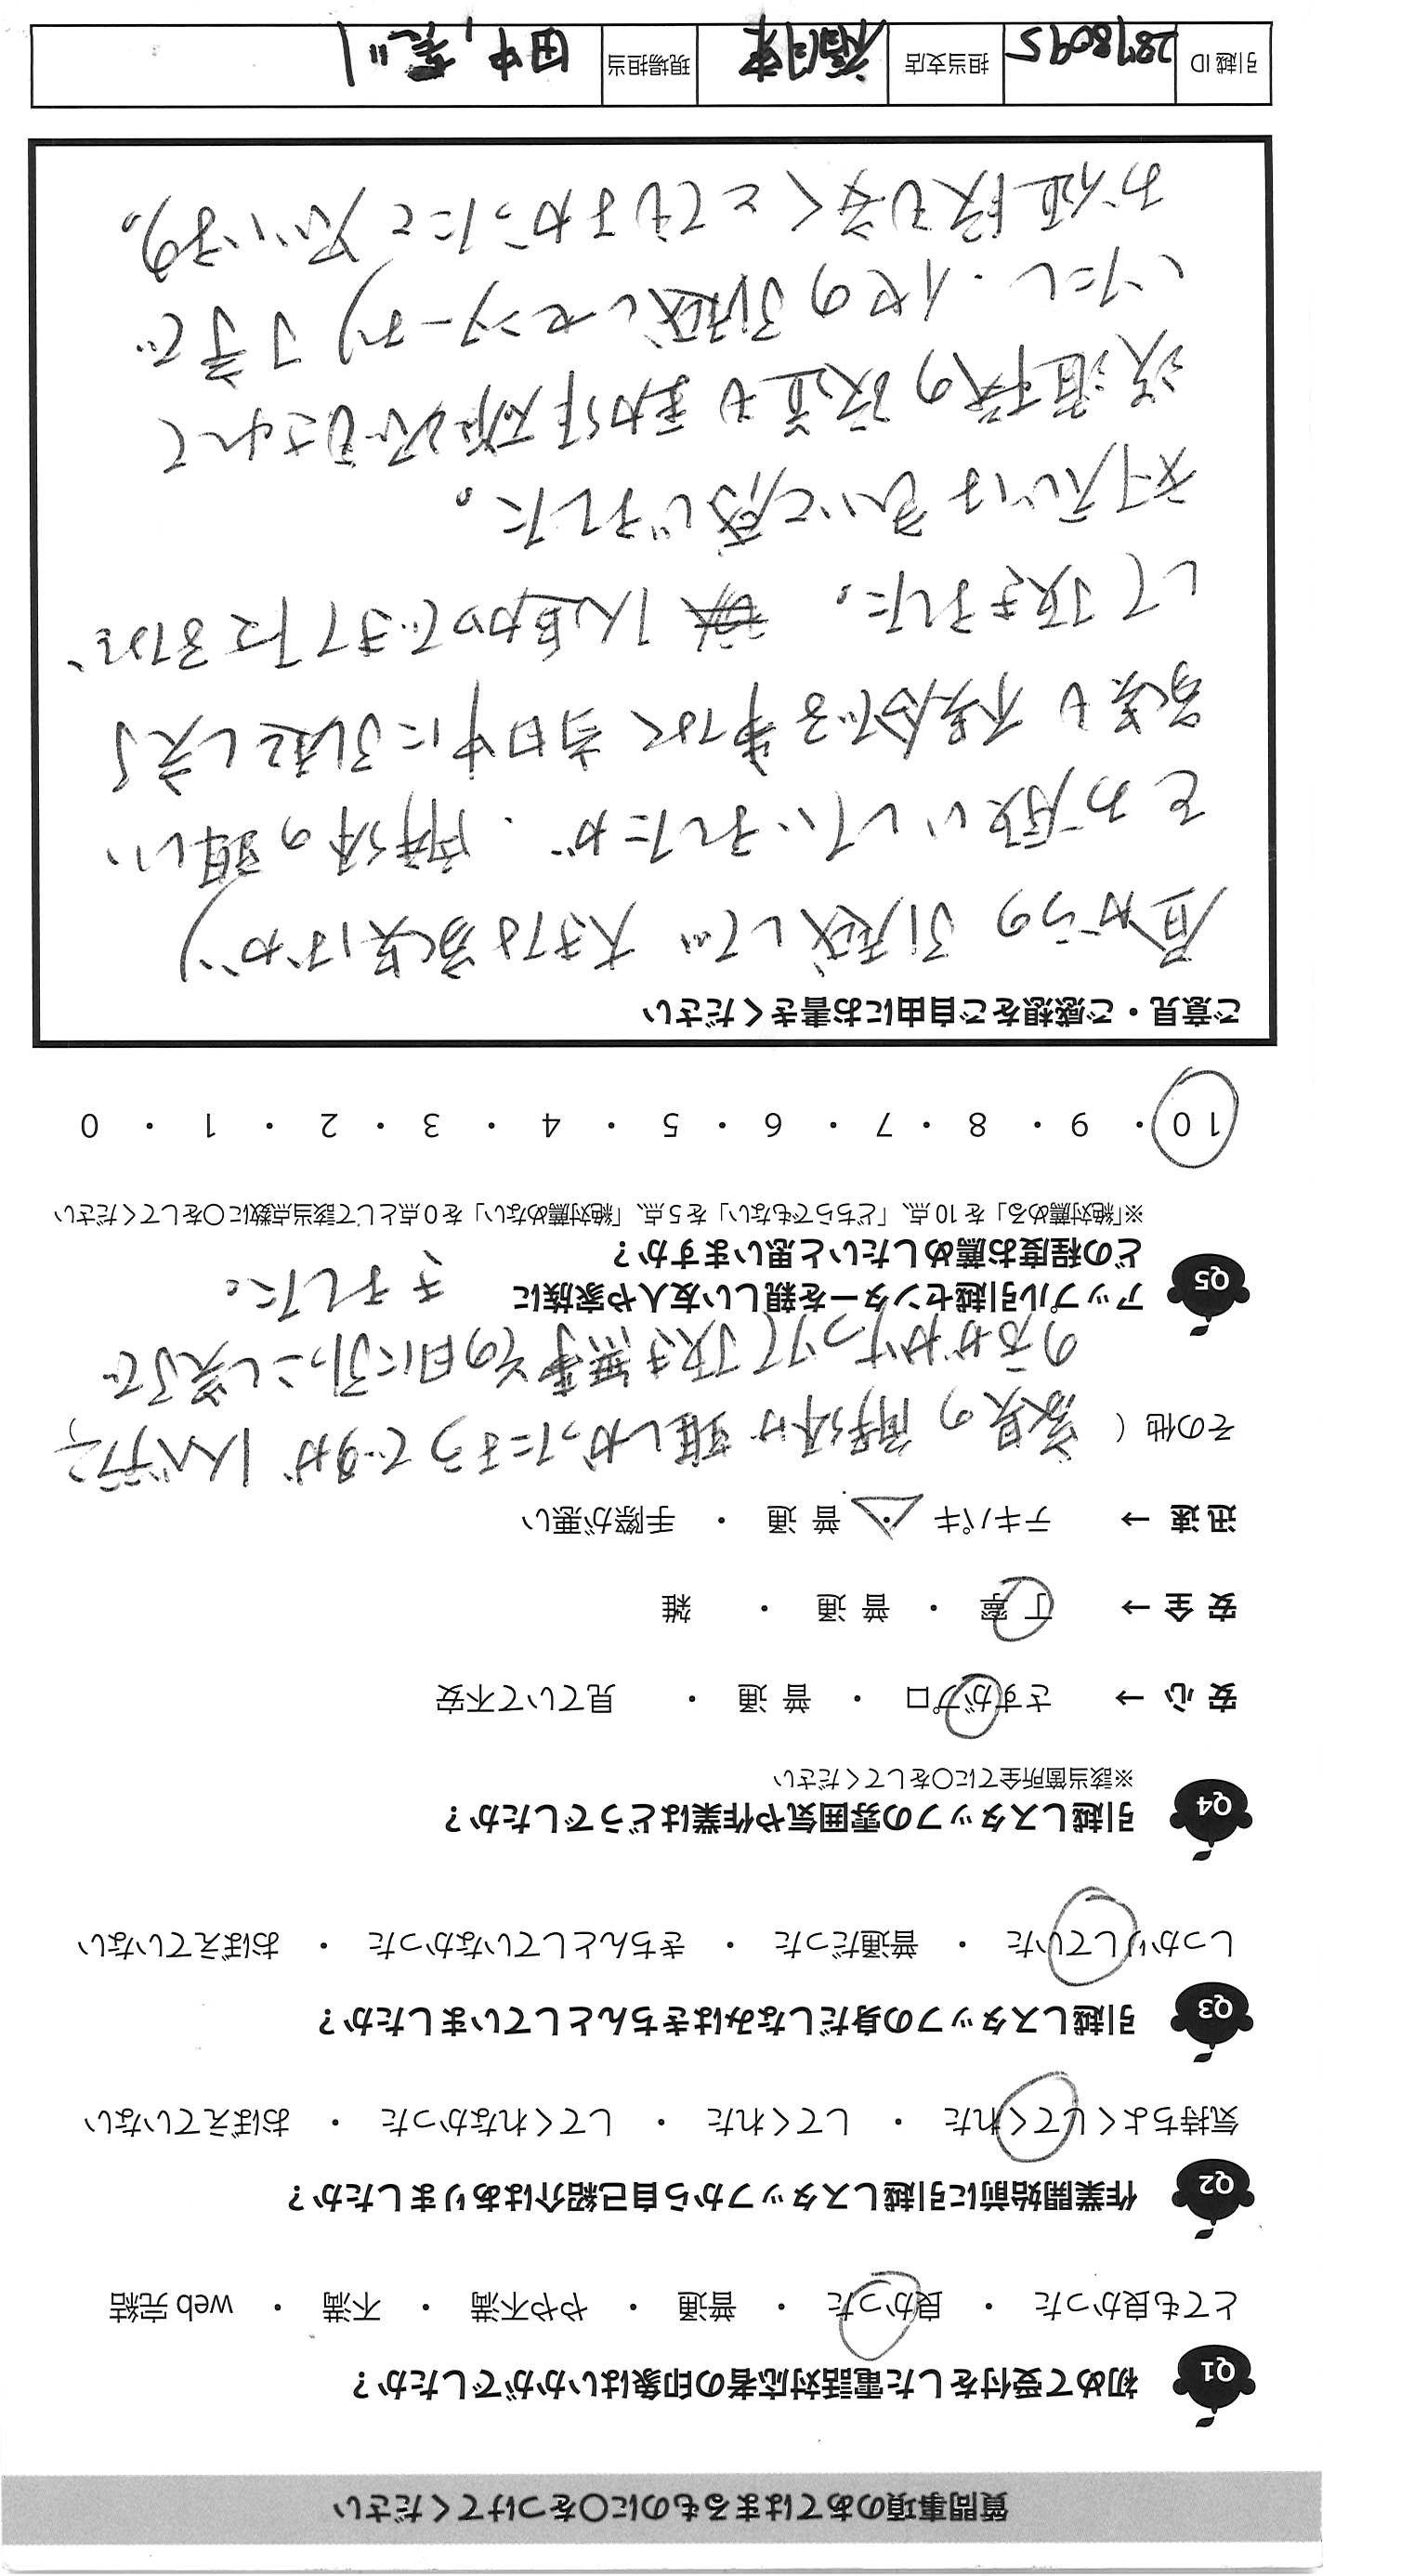 質問事項のあてはまるものに〇をつけてください
Q1 初めて受付をした電話対応者の印象はいかがでしたか？
とても良かった ・ 良かった ・ 普通 ・ やや不満 ・ 不満 ・ web 完結
Q2 作業開始前に引越しスタッフから自己紹介はありましたか？
気持ちよくしてくれた ・ してくれた ・ してくれなかった ・ おぼえていない
Q3 引越しスタッフの身だしなみはきちんとしていましたか？
しっかりしていた ・ 普通だった ・ きちんとしていなかった ・ おぼえていない
Q4 引越しスタッフの雰囲気や作業はどうでしたか？
※該当箇所全てに〇をしてください
安心 → さすがプロ ・ 普通 ・ 見ていて不安
安全 → 丁寧 ・ 普通 ・ 雑
迅速 → テキパキ ・ 普通 ・ 手際が悪い
その他（ 家具の解体が難しかったようですが 1人ベテラン
の方がかけつけて頂き無事その日に引っこし完了で
きました。
Q5 アップル引越センターを親しい友人や家族に
どの程度お薦めしたいと思いますか？
※「絶対薦める」を 10 点、「どちらでもない」を 5 点、「絶対薦めない」を 0 点として該当点数に〇をしてください
10 ・ 9 ・ 8 ・ 7 ・ 6 ・ 5 ・ 4 ・ 3 ・ 2 ・ 1 ・ 0
ご意見・ご感想をご自由にお書きください
昼からの引越しで 大きな家具ばかり
とお願いしていましたが、解体の難しい
家具も不具合でる事なく当日中に引越し完了
して頂きました。 1人追加できて下さるなど、
対応は早いと感じました。
洗濯機の設置も動作確認もされて
いたし、他の引越しセンターより丁寧で
お値段も安くとてもよかったと思います。
引越 ID 2878095 担当支店 福岡東 現場担当 田中,